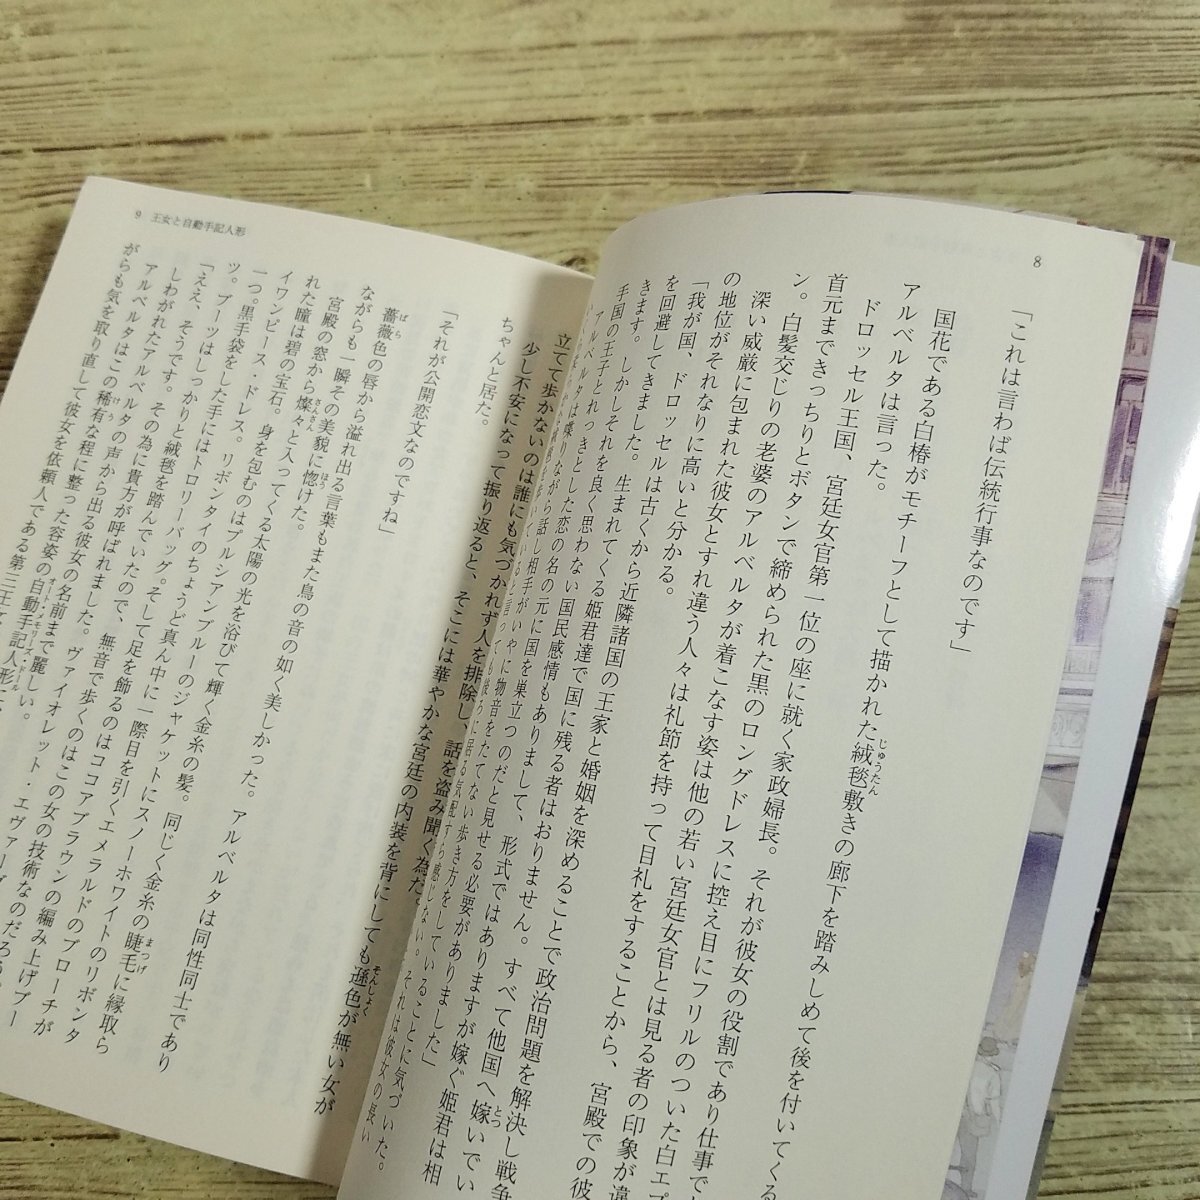 8
「これは言わば伝統行事なのです」
アルベルタは言った。
ドロッセル王国、宮廷女官第一位の座に就く家政婦長。それが彼女の役割であり仕事で
国花である白椿がモチーフとして描かれた絨毯敷きの廊下を踏みしめて後を付いてくる
首元まできっちりとボタンで締められた黒のロングドレスに控え目にフリルのついた白エプ
ン。白髪交じりの老婆のアルベルタが着こなす姿は他の若い宮廷女官とは見る者の印象が違
深い威厳に包まれた彼女とすれ違う人々は礼節を持って目礼をすることから、宮殿での彼
の地位がそれなりに高いと分かる。
「我が国、ドロッセルは古くから近隣諸国の王家と婚姻を深めることで政治問題を解決し戦争
を回避してきました。生まれてくる姫君達で国に残る者はおりません。すべて他国へ嫁いでい
きます。しかしそれを良く思わない国民感情もありまして、形式ではありますが嫁ぐ姫君は相
手国の王子とれっきとした恋の名の元に国を巣立つのだと見せる必要がありました」
アルベルタは喋りながら話し相手がいやに物音をたてない歩き方をしていることに気づいた。
9 王女と自動手記人形
立てて歩かないのは誰にも気づかれず人を排除し、話を盗み聞く為だ
少し不安になって振り返ると、そこには華やかな宮廷の内装を背にしても遜色が無い女が
ちゃんと居た。
「それが公開恋文なのですね」
薔薇色の唇から溢れ出る言葉もまた鳥の音の如く美しかった。アルベルタは同性同士であり
ながらも一瞬その美貌に惚けた。
宮殿の窓から燦々と入ってくる太陽の光を浴びて輝く金糸の髪。同じく金糸の睫毛に縁取ら
れた瞳は碧の宝石。身を包むのはプルシアンブルーのジャケットにスノーホワイトのリボンタ
イワンピース・ドレス。リボンタイのちょうど真ん中に一際目を引くエメラルドのブローチが
一つ。黒手袋をした手にはトロリーバッグ。そして足を飾るのはココアブラウンの編み上げブー
ツ。ブーツはしっかりと絨毯を踏んでいたので、無音で歩くのはこの女の技術なのだろう。
「ええ、そうです。その為に貴方が呼ばれました。ヴァイオレット・エヴァーガ
しわがれたアルベルタの声から出る彼女の名前まで麗しい。
アルベルタはこの稀有な程に整った容姿の自動手記人形に
がらも気を取り直して彼女を依頼人である第三王